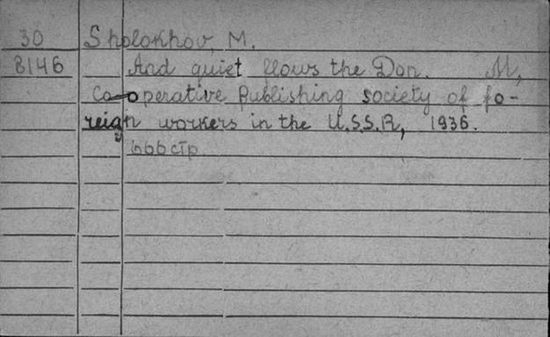 30 Sholokhov, M.
8146 And quiet flows the Don. M,
Co-operative Publishing society of fo-
reign workers in the U.S.S.R, 1936.
666 стр